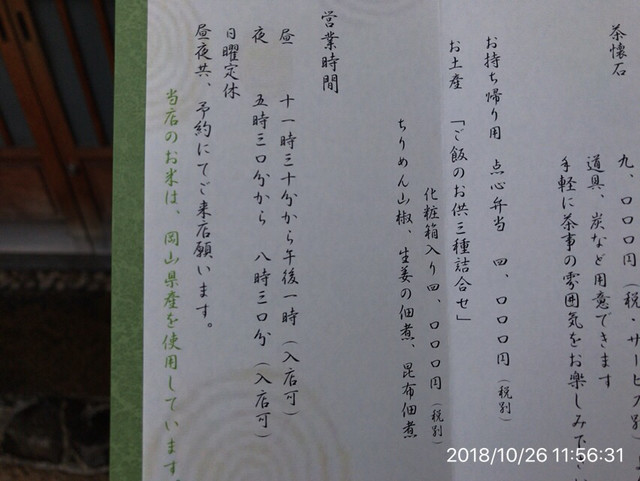 茶懐石
九、〇〇〇円（税・サービス別）
道具、炭など用意できます
手軽に茶事の雰囲気をお楽しみ下さい
お持ち帰り用 点心弁当 四、〇〇〇円（税別）
お土産 「ご飯のお供三種詰合せ」
化粧箱入り四、〇〇〇円（税別）
ちりめん山椒、生姜の佃煮、昆布佃煮
営業時間
昼 十一時三十分から午後一時（入店可）
夜 五時三〇分から 八時三〇分（入店可）
日曜定休
昼夜共、予約にてご来店願います。
当店のお米は、岡山県産を使用しています。
2018/10/26 11:56:31